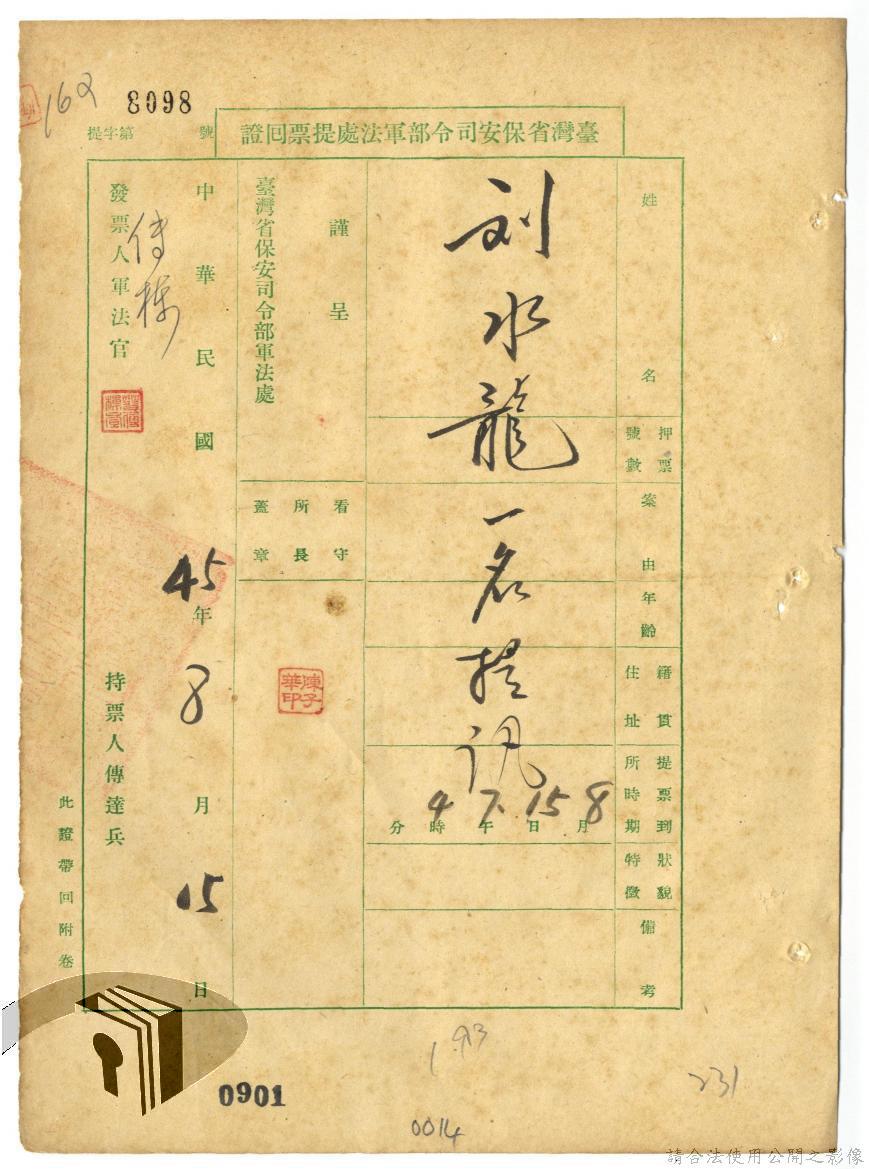 162
8098
提字第 號
臺灣省保安司令部軍法處提票回證
姓 名
刘水龍一名提訊
押票號數
案由
年齡
籍貫住址
提票到所時期
8月15日下午4時 分
狀貌特徵
備考
謹呈
臺灣省保安司令部軍法處
看守所長蓋章
陳子華印
中華民國45年8月15日
發票人軍法官
持票人傳達兵
此證帶回附卷
193
231
0901
0014
請合法使用公開之影像